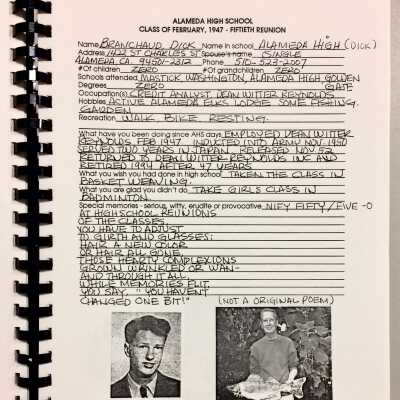 ALAMEDA HIGH SCHOOL
CLASS OF FEBRUARY, 1947 - FIFTIETH REUNION
Name BRANCHAUD, DICK Name in school ALAMEDA HIGH (DICK)
Address 1422 ST CHARLES ST Spouse's name (SINGLE
ALAMEDA CA. 94501-2312 Phone 510-523-2007
#Of children ZERO #Of grandchildren ZERO
Schools attended MASTICK, WASHINGTON, ALAMEDA HIGH GOLDEN
Degrees ZERO GATE
Occupation(s) CREDIT ANALYST DEAN WITTER REYNOLDS
Hobbies ACTIVE ALAMEDA ELKS LODGE SOME FISHING.
GARDEN
Recreation WALK, BIKE, RESTING.
What have you been doing since AHS days EMPLOYED DEAN WITTER
REYNOLDS FEB 1947. INDUCTED INTO ARMY NOV. 1950
SERVED TWO YEARS IN JAPAN, RELEASED NOV 52
RETURNED TO DEAN WITTER REYNOLDS INC AND
RETIRED 1994 AFTER 47 YEARS
What you wish you had done in high school TAKEN THE CLASS IN
BASKET WEAVING.
What you are glad you didn't do TAKE GIRLS CLASS IN
BADMINTON.
Special memories - serious, witty, erudite or provocative NIFY FIFTY/FIVE-O
AT HIGH SCHOOL REUNIONS
OF THE CLASSES.
YOU HAVE TO ADJUST
TO GIRTH AND GLASSES;
HAIR A NEW COLOR
OR HAIR ALL GONE,
THOSE HEARTY COMPLEXIONS
GROWN WRINKLED OR WAN-
AND THROUGH IT ALL,
WHILE MEMORIES FLIT,
YOU SAY, "YOU HAVEN'T
CHANGED ONE BIT!" (NOT A ORIGINAL POEM)